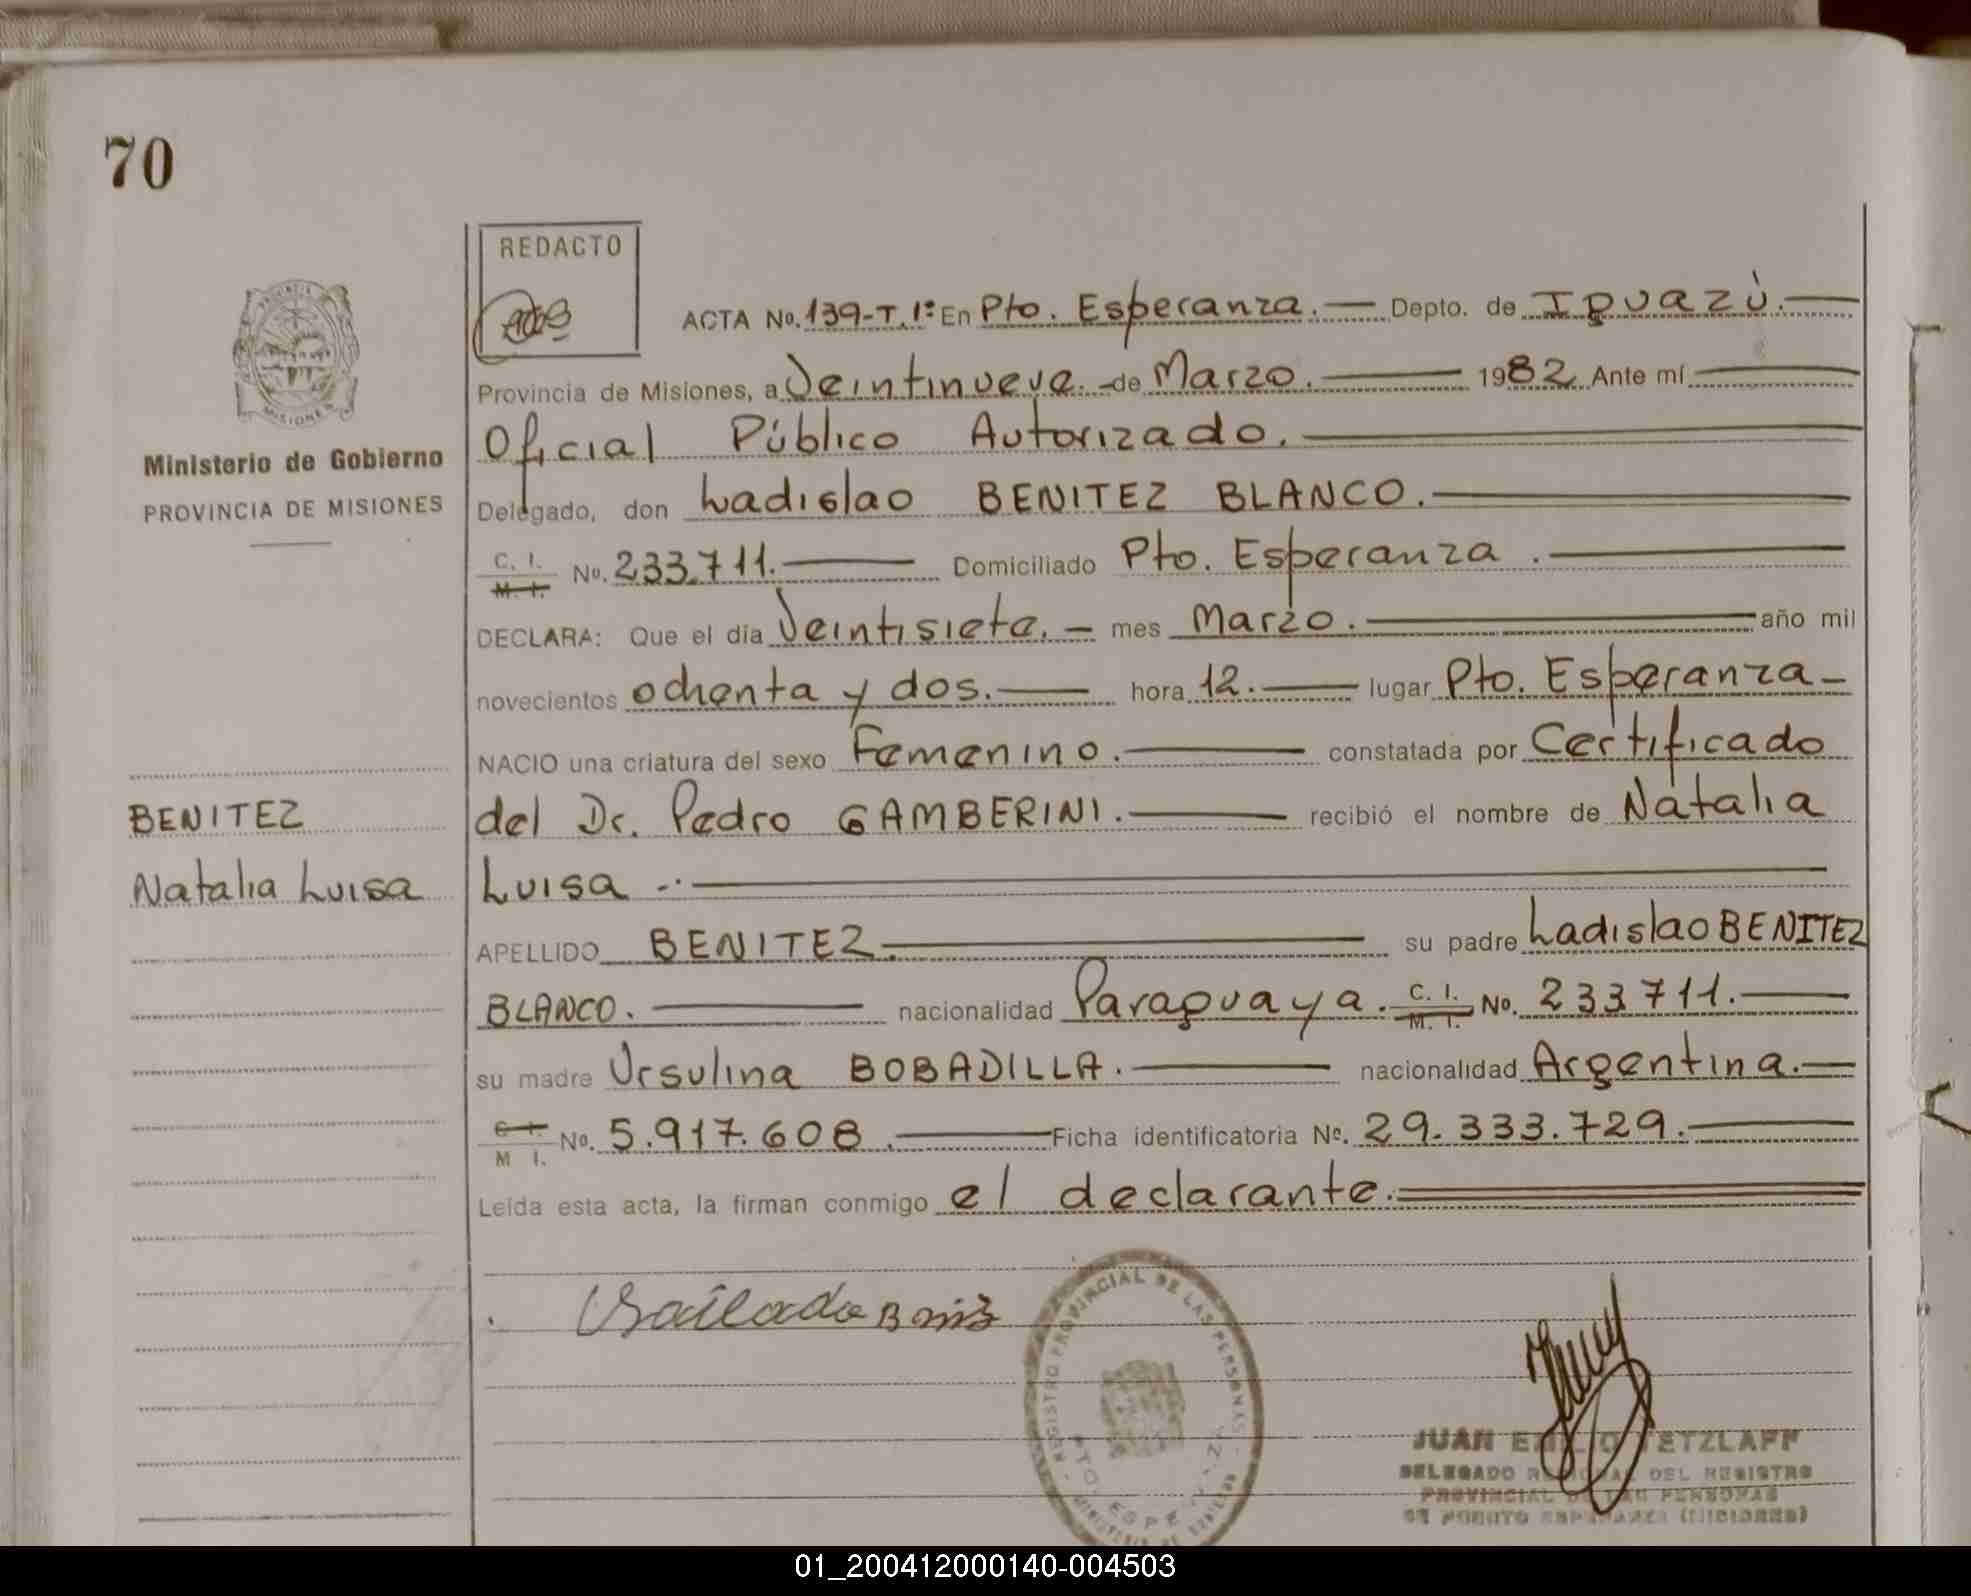 70
REDACTO
ACTA No. 139-T.1º En Pto. Esperanza. Depto. de Iguazú.
Provincia de Misiones, a Veintinueve. de Marzo. 1982 Ante mí
Oficial Público Autorizado.
Delegado, don Ladislao BENITEZ BLANCO.
C. I. M. I. No. 233.711. Domiciliado Pto. Esperanza.
DECLARA: Que el día Veintisiete. mes Marzo. año mil
novecientos ochenta y dos. hora 12. lugar Pto. Esperanza
NACIO una criatura del sexo Femenino. constatada por Certificado
del Dr. Pedro GAMBERINI. recibió el nombre de Natalia
Luisa
APELLIDO BENITEZ. su padre Ladislao BENITEZ
BLANCO. nacionalidad Paraguaya. C. I. M. I. No. 233711.
su madre Ursulina BOBADILLA. nacionalidad Argentina.
C. I. M I. No. 5.917.608. Ficha identificatoria Nº. 29.333.729.
Leída esta acta, la firman conmigo el declarante.
Ministerio de Gobierno
PROVINCIA DE MISIONES
BENITEZ
Natalia Luisa
REGISTRO PROVINCIAL DE LAS PERSONAS
PTO. ESPE
JUAN ETZLAFF
DELEGADO DEL REGISTRO
PROVINCIAL DE LAS PERSONAS
DE PUERTO ESPERANZA (MISIONES)
01_200412000140-004503